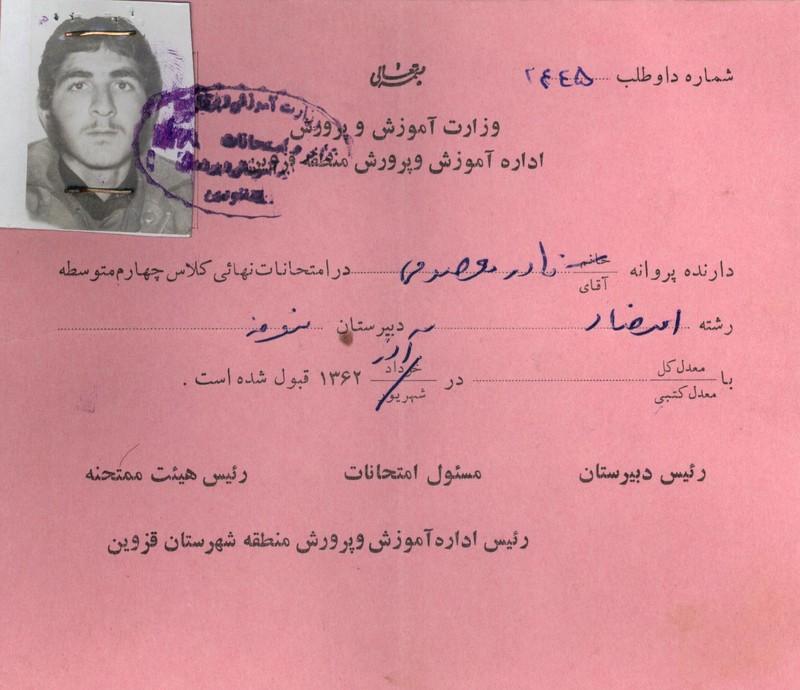 بسمه تعالی
شماره داوطلب ۲۶۴۵
وزارت آموزش و پرورش
اداره آموزش وپرورش منطقه قزوین
دارنده پروانه خانم آقای نادر معصومی در امتحانات نهائی کلاس چهارم متوسطه
رشته دبیرستان
با معدل کل معدل کتبی در خرداد شهریور آذر ۱۳۶۲ قبول شده است .
رئیس دبیرستان مسئول امتحانات رئیس هیئت ممتحنه
رئیس اداره آموزش وپرورش منطقه شهرستان قزوین